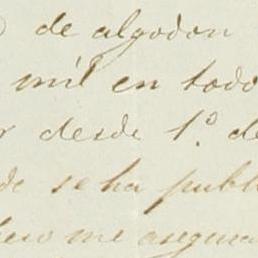 de algodon
mil en todo
desde 1.º de
se ha publi
me asegura